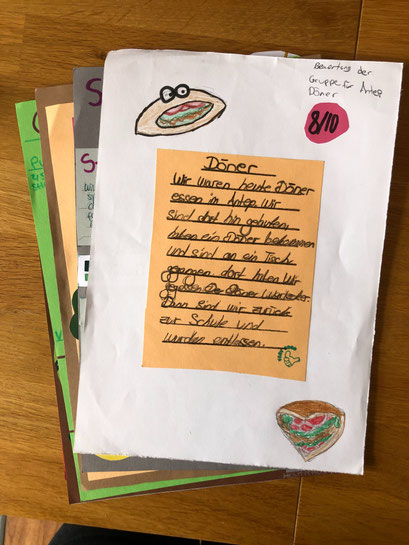 Bewertung der
Gruppe für Antep
Döner
8/10
Döner
Wir waren heute Döner
essen im Antep. Wir
sind dort hin gelaufen,
haben ein Döner bekommen
und sind an ein Tisch
gegangen dort haben Wir
gegessen. Der Döner War lecker.
Dann sind wir zurück
zur Schule und
wurden entlassen.